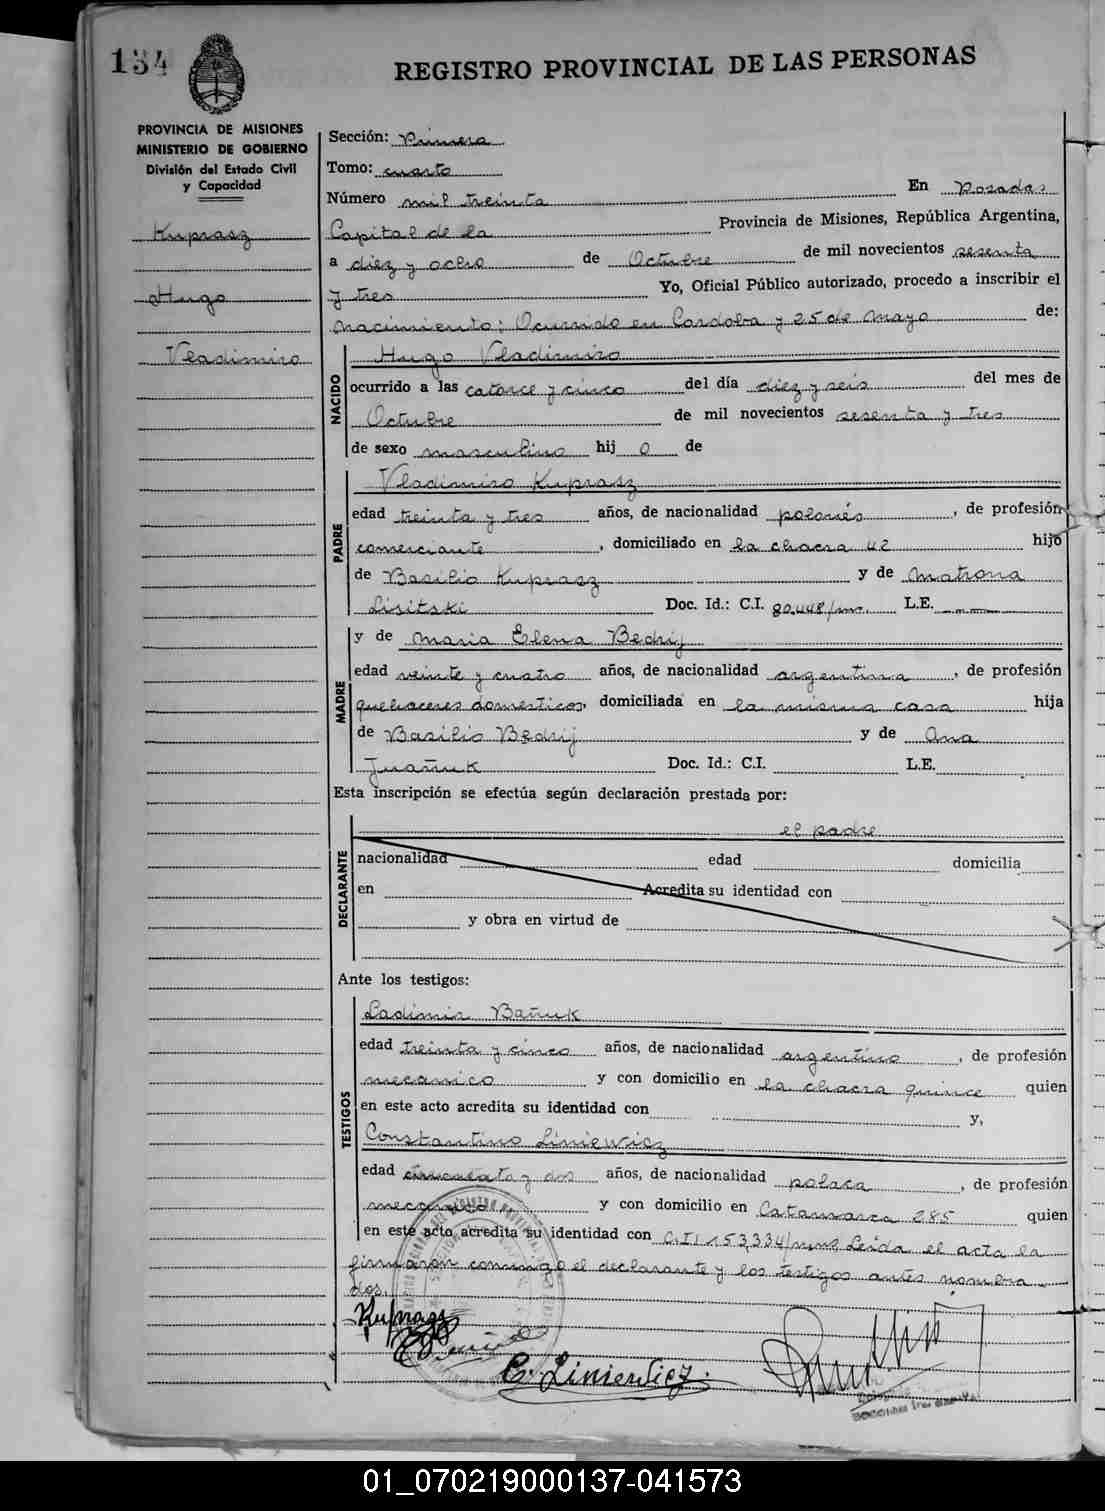 134
REGISTRO PROVINCIAL DE LAS PERSONAS
PROVINCIA DE MISIONES
MINISTERIO DE GOBIERNO
División del Estado Civil
y Capacidad
Kuprasz
Hugo
Vladimiro
Sección: Primera
Tomo: cuarto
Número mil treinta En Posadas
Capital de la Provincia de Misiones, República Argentina,
a diez y ocho de Octubre de mil novecientos sesenta
y tres Yo, Oficial Público autorizado, procedo a inscribir el
nacimiento: Ocurrido en Cordoba y 25 de Mayo de:
NACIDO
Hugo Vladimiro
ocurrido a las catorce y cinco del día diez y seis del mes de
Octubre de mil novecientos sesenta y tres
de sexo masculino hij o de
PADRE
Vladimiro Kuprasz
edad treinta y tres años, de nacionalidad polonés, de profesión
comerciante, domiciliado en la chacra 42 hijo
de Basilio Kuprasz y de Matrona
Lisitski Doc. Id.: C.I. 80.448/mns. L.E.
MADRE
y de Maria Elena Bedrij
edad veinte y cuatro años, de nacionalidad argentina, de profesión
quehaceres domesticos, domiciliada en la misma casa hija
de Basilio Bedrij y de Ana
Juañuk Doc. Id.: C.I. L.E.
Esta inscripción se efectúa según declaración prestada por:
DECLARANTE
el padre
nacionalidad edad domicilia
en Acredita su identidad con
y obra en virtud de
Ante los testigos:
TESTIGOS
Ladimir Bañuk
edad treinta y cinco años, de nacionalidad argentino, de profesión
mecanico y con domicilio en la chacra quince quien
en este acto acredita su identidad con y,
Constantino Liniewicz
edad cincuenta y dos años, de nacionalidad polaca, de profesión
mecanico y con domicilio en Catamarca 285 quien
en este acto acredita su identidad con C.I. 153,334/mns Leida el acta la
firmaron conmigo el declarante y los testigos antes nombra
dos.
Kuprasz
C. Liniewicz.
01_070219000137-041573